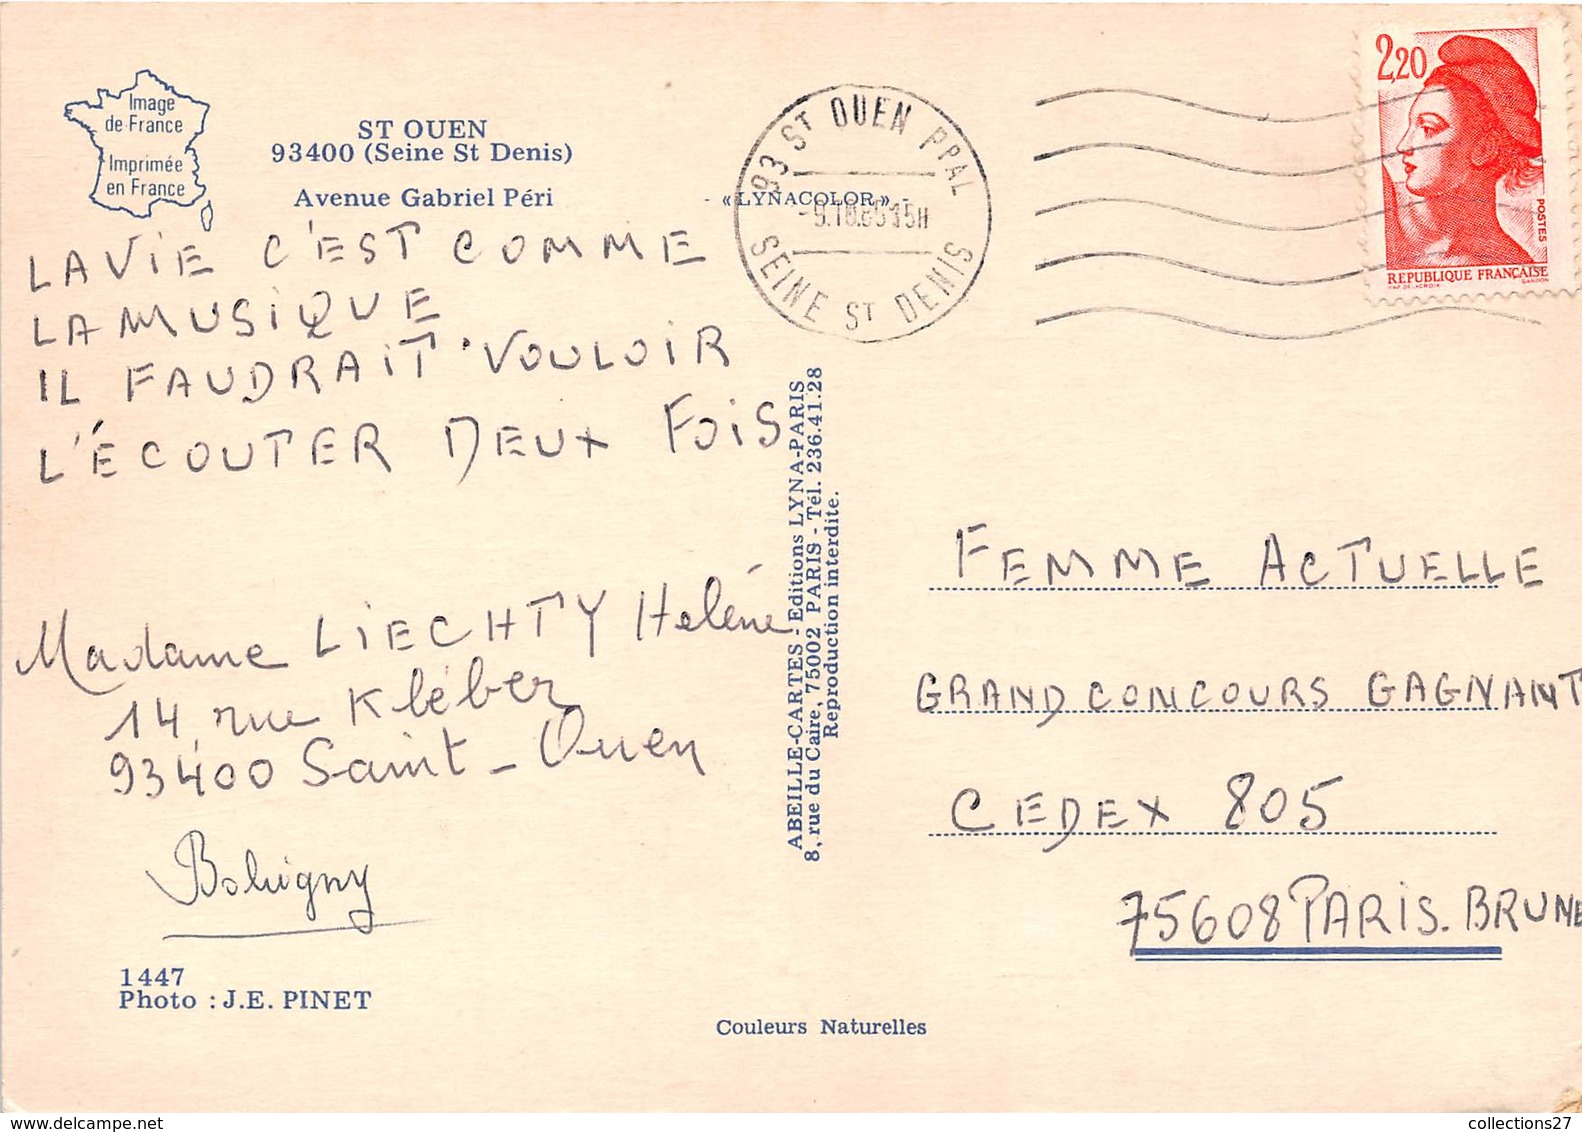 Image
de France
Imprimée
en France
ST OUEN
93400 (Seine St Denis)
Avenue Gabriel Péri
LA VIE C'EST COMME
LA MUSIQUE
IL FAUDRAIT VOULOIR
L'ÉCOUTER DEUX FOIS
Madame LIECHTY Helène
14 rue Kléber
93400 Saint-Ouen
Bobigny
1447
Photo : J.E. PINET
« LYNACOLOR »
93 ST OUEN PPAL
15H
SEINE ST DENIS
2,20
POSTES
REPUBLIQUE FRANÇAISE
GANDON
ABEILLE-CARTES - Editions LYNA-PARIS
8, rue du Caire, 75002 PARIS - Tél. 236.41.28
Reproduction interdite.
FEMME ACTUELLE
GRAND CONCOURS GAGNANT
CEDEX 805
75608 PARIS. BRUNE
Couleurs Naturelles
collections27